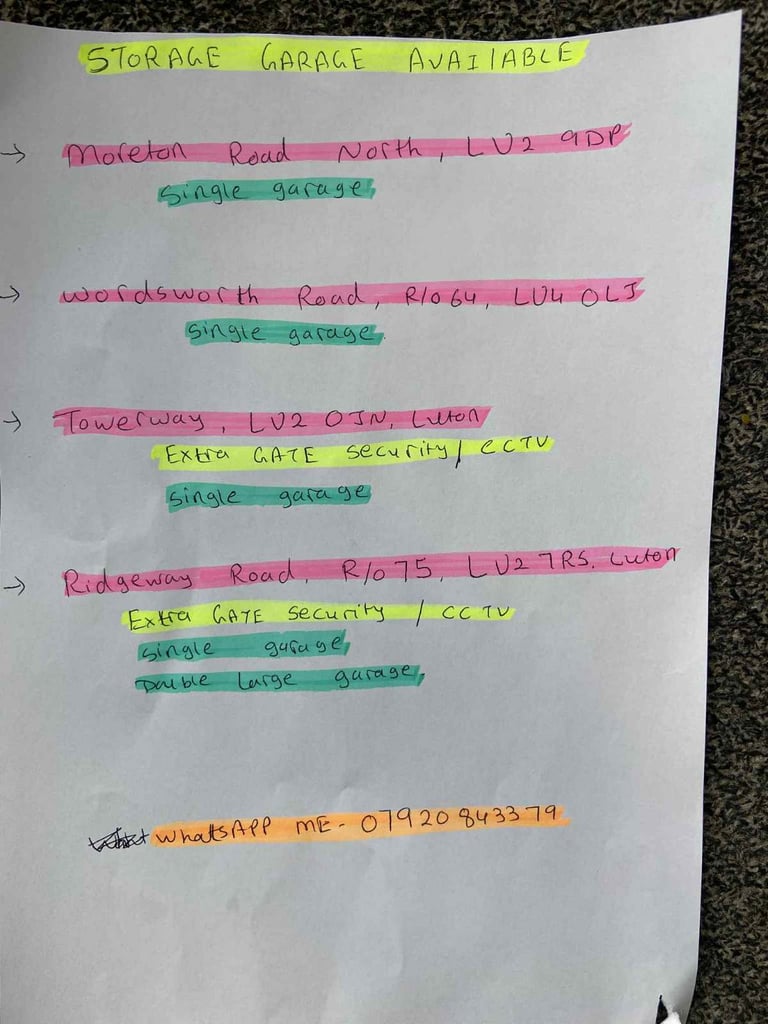 STORAGE GARAGE AVAILABLE
→ Moreton Road North, LU2 9DP
Single garage
→ Wordsworth Road, R/O 64, LU4 0LJ
Single garage.
→ Towerway, LU2 0JN, Luton
Extra GATE Security / CCTV
Single garage
→ Ridgeway Road, R/O 75, LU2 7RS. Luton
Extra GATE Security / CCTV
Single garage
Double Large garage.
WhatsAPP ME- 07920 843379